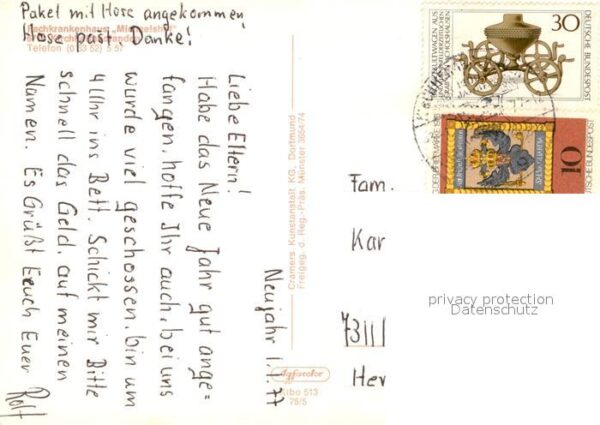 Paket mit Hose angekommen
Hose past. Danke!
Fachkrankenhaus
Telefon
Neujahr 1.1.77
Liebe Eltern!
Habe das Neue Jahr gut ange=
fangen, hoffe Ihr auch, bei uns
wurde viel geschossen, bin um
4 Uhr ins Bett. Schickt mir Bitte
schnell das Geld, auf meinen
Namen. Es Grüßt Eeuch Euer Rolf
Cramers Kunstanstalt KG, Dortmund
Freigeg. d. Reg.-Präs. Münster 365474
Agfacolor
Klbo 513
75/5
30
DEUTSCHE BUNDESPOST
KULTWAGEN AUS
10
Fam.
Kar
7311
Her
privacy protection
Datenschutz